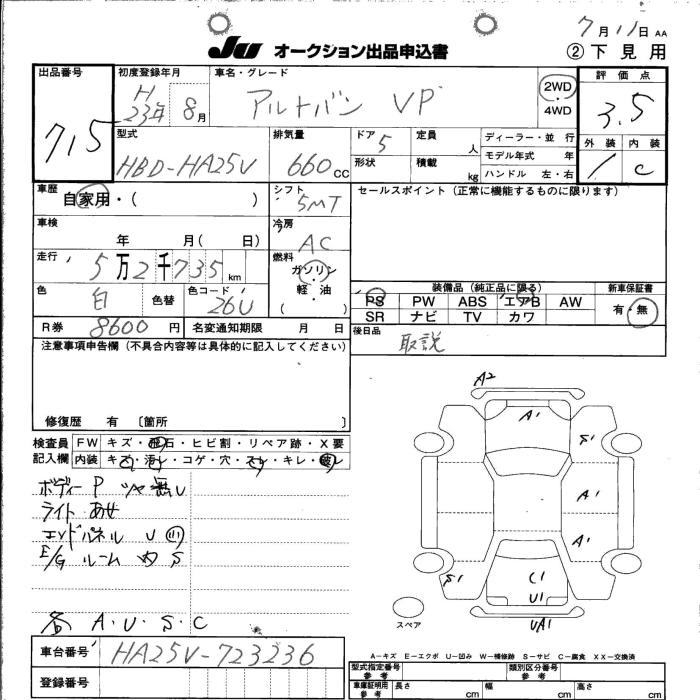 7月11日 AA
JU オークション出品申込書 ②下見用
出品番号 初度登録年月 車名・グレード 評価点
715 H23年8月 アルトバン VP 2WD 4WD 3.5
型式 排気量 ドア 5 定員 人 ディーラー・並行 外装 内装
HBD-HA25V 660CC 形状 積載 kg モデル年式 年 1 C
ハンドル 左・右
車歴 自家用・( ) シフト 5MT セールスポイント(正常に機能するものに限ります)
車検 年 月( 日) 冷房 AC
走行 5万2千735km 燃料 ガソリン・軽・油 ( )
色 白 色替 色コード 26U 装備品(純正品に限る) 新車保証書
PS PW ABS エアB AW 有・無
SR ナビ TV カワ
R券 8600円 名変通知期限 月 日 後日品 取説
注意事項申告欄(不具合内容等は具体的に記入してください)
修復歴 有 〔箇所 〕
検査員記入欄 FW キズ・飛石・ヒビ割・リペア跡・X要
内装 キズ・汚レ・コゲ・穴・スレ・キレ・破レ
ボディー P
ライト あせ
エンドパネル U
E/G ルーム 内 S
各 A・U・S・C
A2
A1
S1
A1
A1
S1
C1
U1
UA1
スペア
A-キズ E-エクボ U-凹み W-補修跡 S-サビ C-腐食 XX-交換済
車台番号 HA25V-723236
登録番号
型式指定番号 参考 類別区分番号 参考
車庫証明用 参考 長さ cm 幅 cm 高さ cm